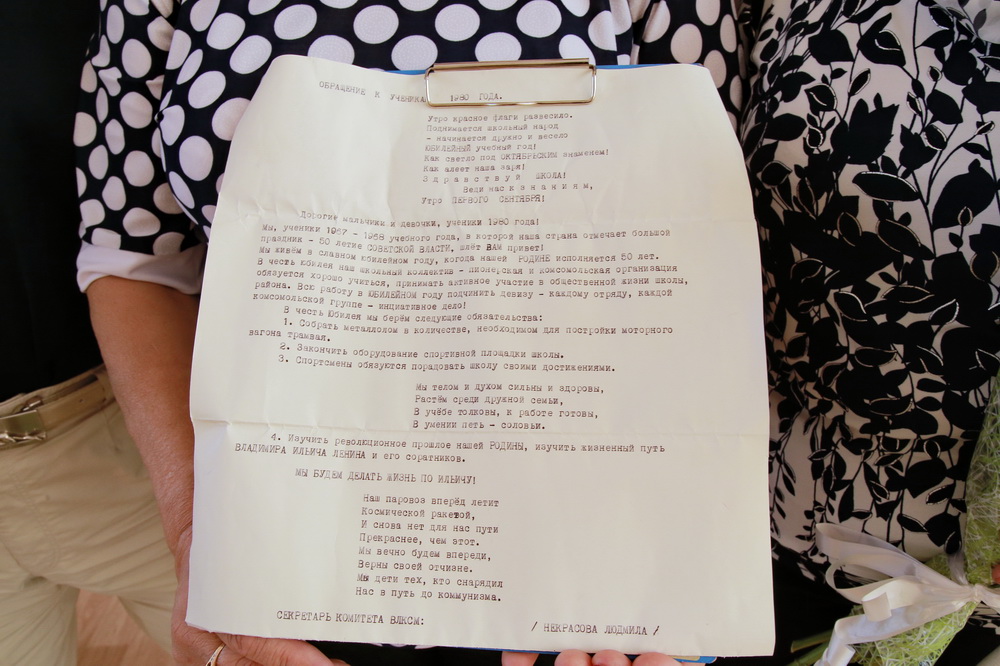 ОБРАЩЕНИЕ К УЧЕНИКА 1980 ГОДА.
Утро красное флаги развесило.
Поднимается школьный народ
- начинается дружно и весело
ЮБИЛЕЙНЫЙ учебный год!
Как светло под ОКТЯБРЬСКИМ знаменем!
Как алеет наша заря!
Здравствуй ШКОЛА!
Веди нас к знаниям,
Утро ПЕРВОГО СЕНТЯБРЯ!
Дорогие мальчики и девочки, ученики 1980 года!
Мы, ученики 1967 - 1968 учебного года, в которой наша страна отмечает большой
праздник - 50 летие СОВЕТСКОЙ ВЛАСТИ, шлёт ВАМ привет!
Мы живём в славном юбилейном году, когода нашей РОДИНЕ исполняется 50 лет.
В честь Юбилея наш школьный коллектив - пионерская и комсомольская организация
обязуется хорошо учиться, принимать активное участие в общественной жизни школы,
района. Всю работу в ЮБИЛЕЙНОМ году подчинить девизу - каждому отряду, каждой
комсомольской группе - инциативное дело!
В честь Юбилея мы берём следующие обязательства:
1. Собрать металлолом в количестве, необходимом для постройки моторного
вагона трамвая.
2. Закончить оборудование спортивной площадки школы.
3. Спортсмены обязуются порадовать школу своими достижениями.
Мы телом и духом сильны и здоровы,
Растём среди дружной семьи,
В учёбе толковы, к работе готовы,
В умении петь - соловьи.
4. Изучить революционное прошлое нашей РОДИНЫ, изучить жизненный путь
ВЛАДИМИРА ИЛЬИЧА ЛЕНИНА и его соратников.
МЫ БУДЕМ ДЕЛАТЬ ЖИЗНЬ ПО ИЛЬИЧУ!
Наш паровоз вперёд летит
Космической ракетой,
И снова нет для нас пути
Прекраснее, чем этот.
Мы вечно будем впереди,
Верны своей отчизне.
Мы дети тех, кто снарядил
Нас в путь до коммунизма.
СЕКРЕТАРЬ КОМИТЕТА ВЛКСМ: / НЕКРАСОВА ЛЮДМИЛА /